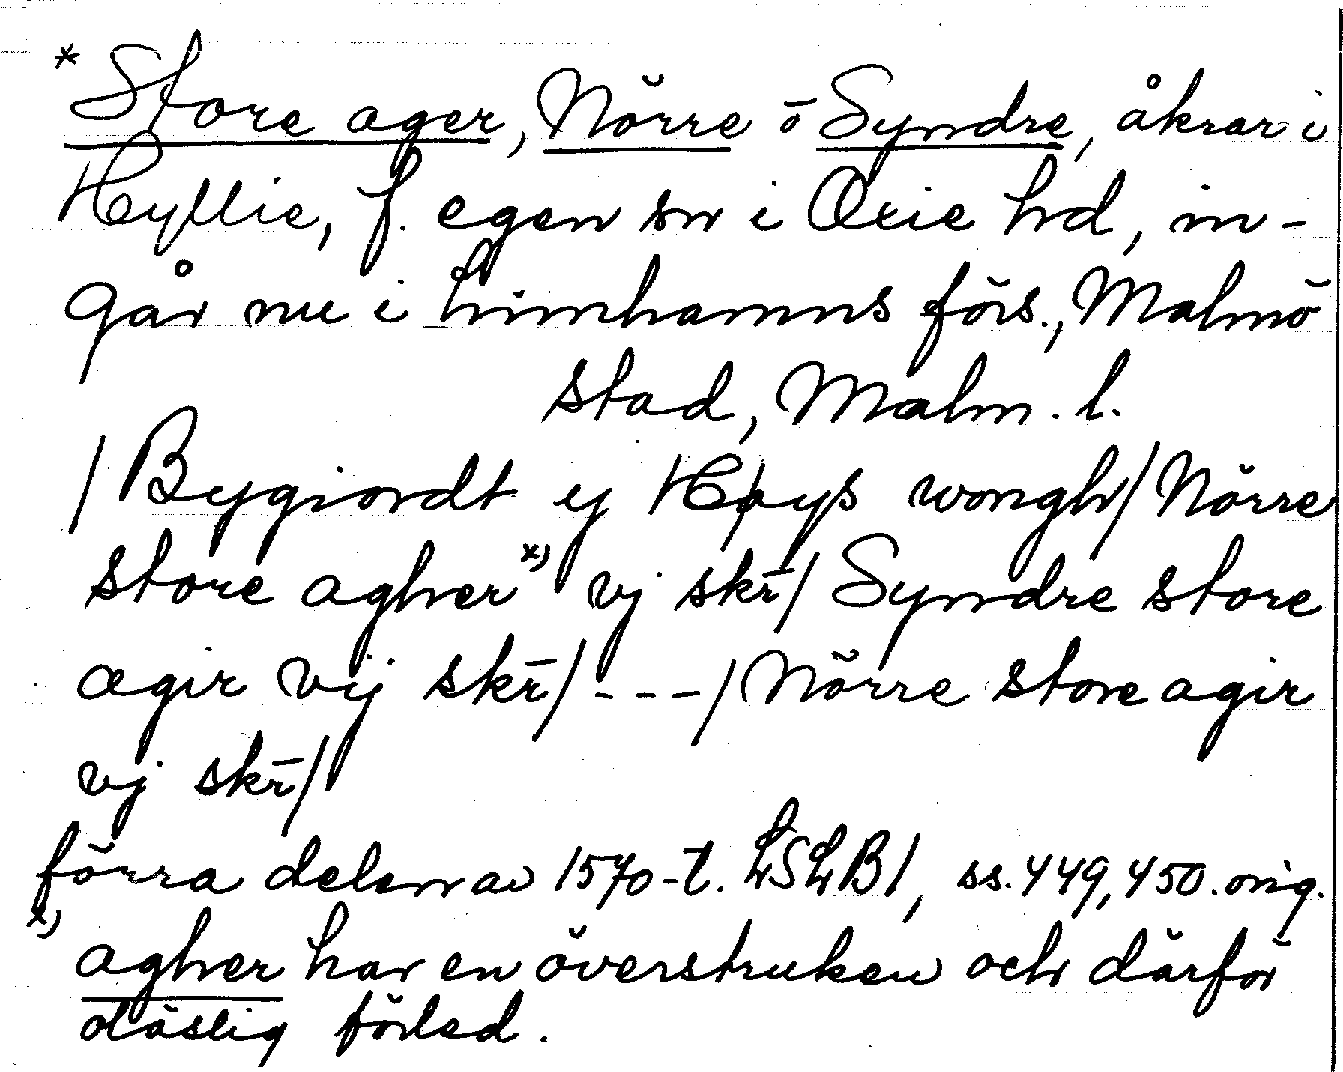 * Store ager, Nörre o Syndre, åkrar i
Hyllie, f. egen sn i Oxie hd, in-
går nu i Limhamns förs., Malmö
stad, Malm. l.
/Bygiordt ij Höys wongh/Nörre
store agher x) vj skr̄/Syndre store
agir vij skr̄/---/Nörre store agir
vj skr̄/
förra delen av 1570-t. LSLB1, ss. 449, 450. orig.
x) agher har en överstruken och därför
oläslig förled.